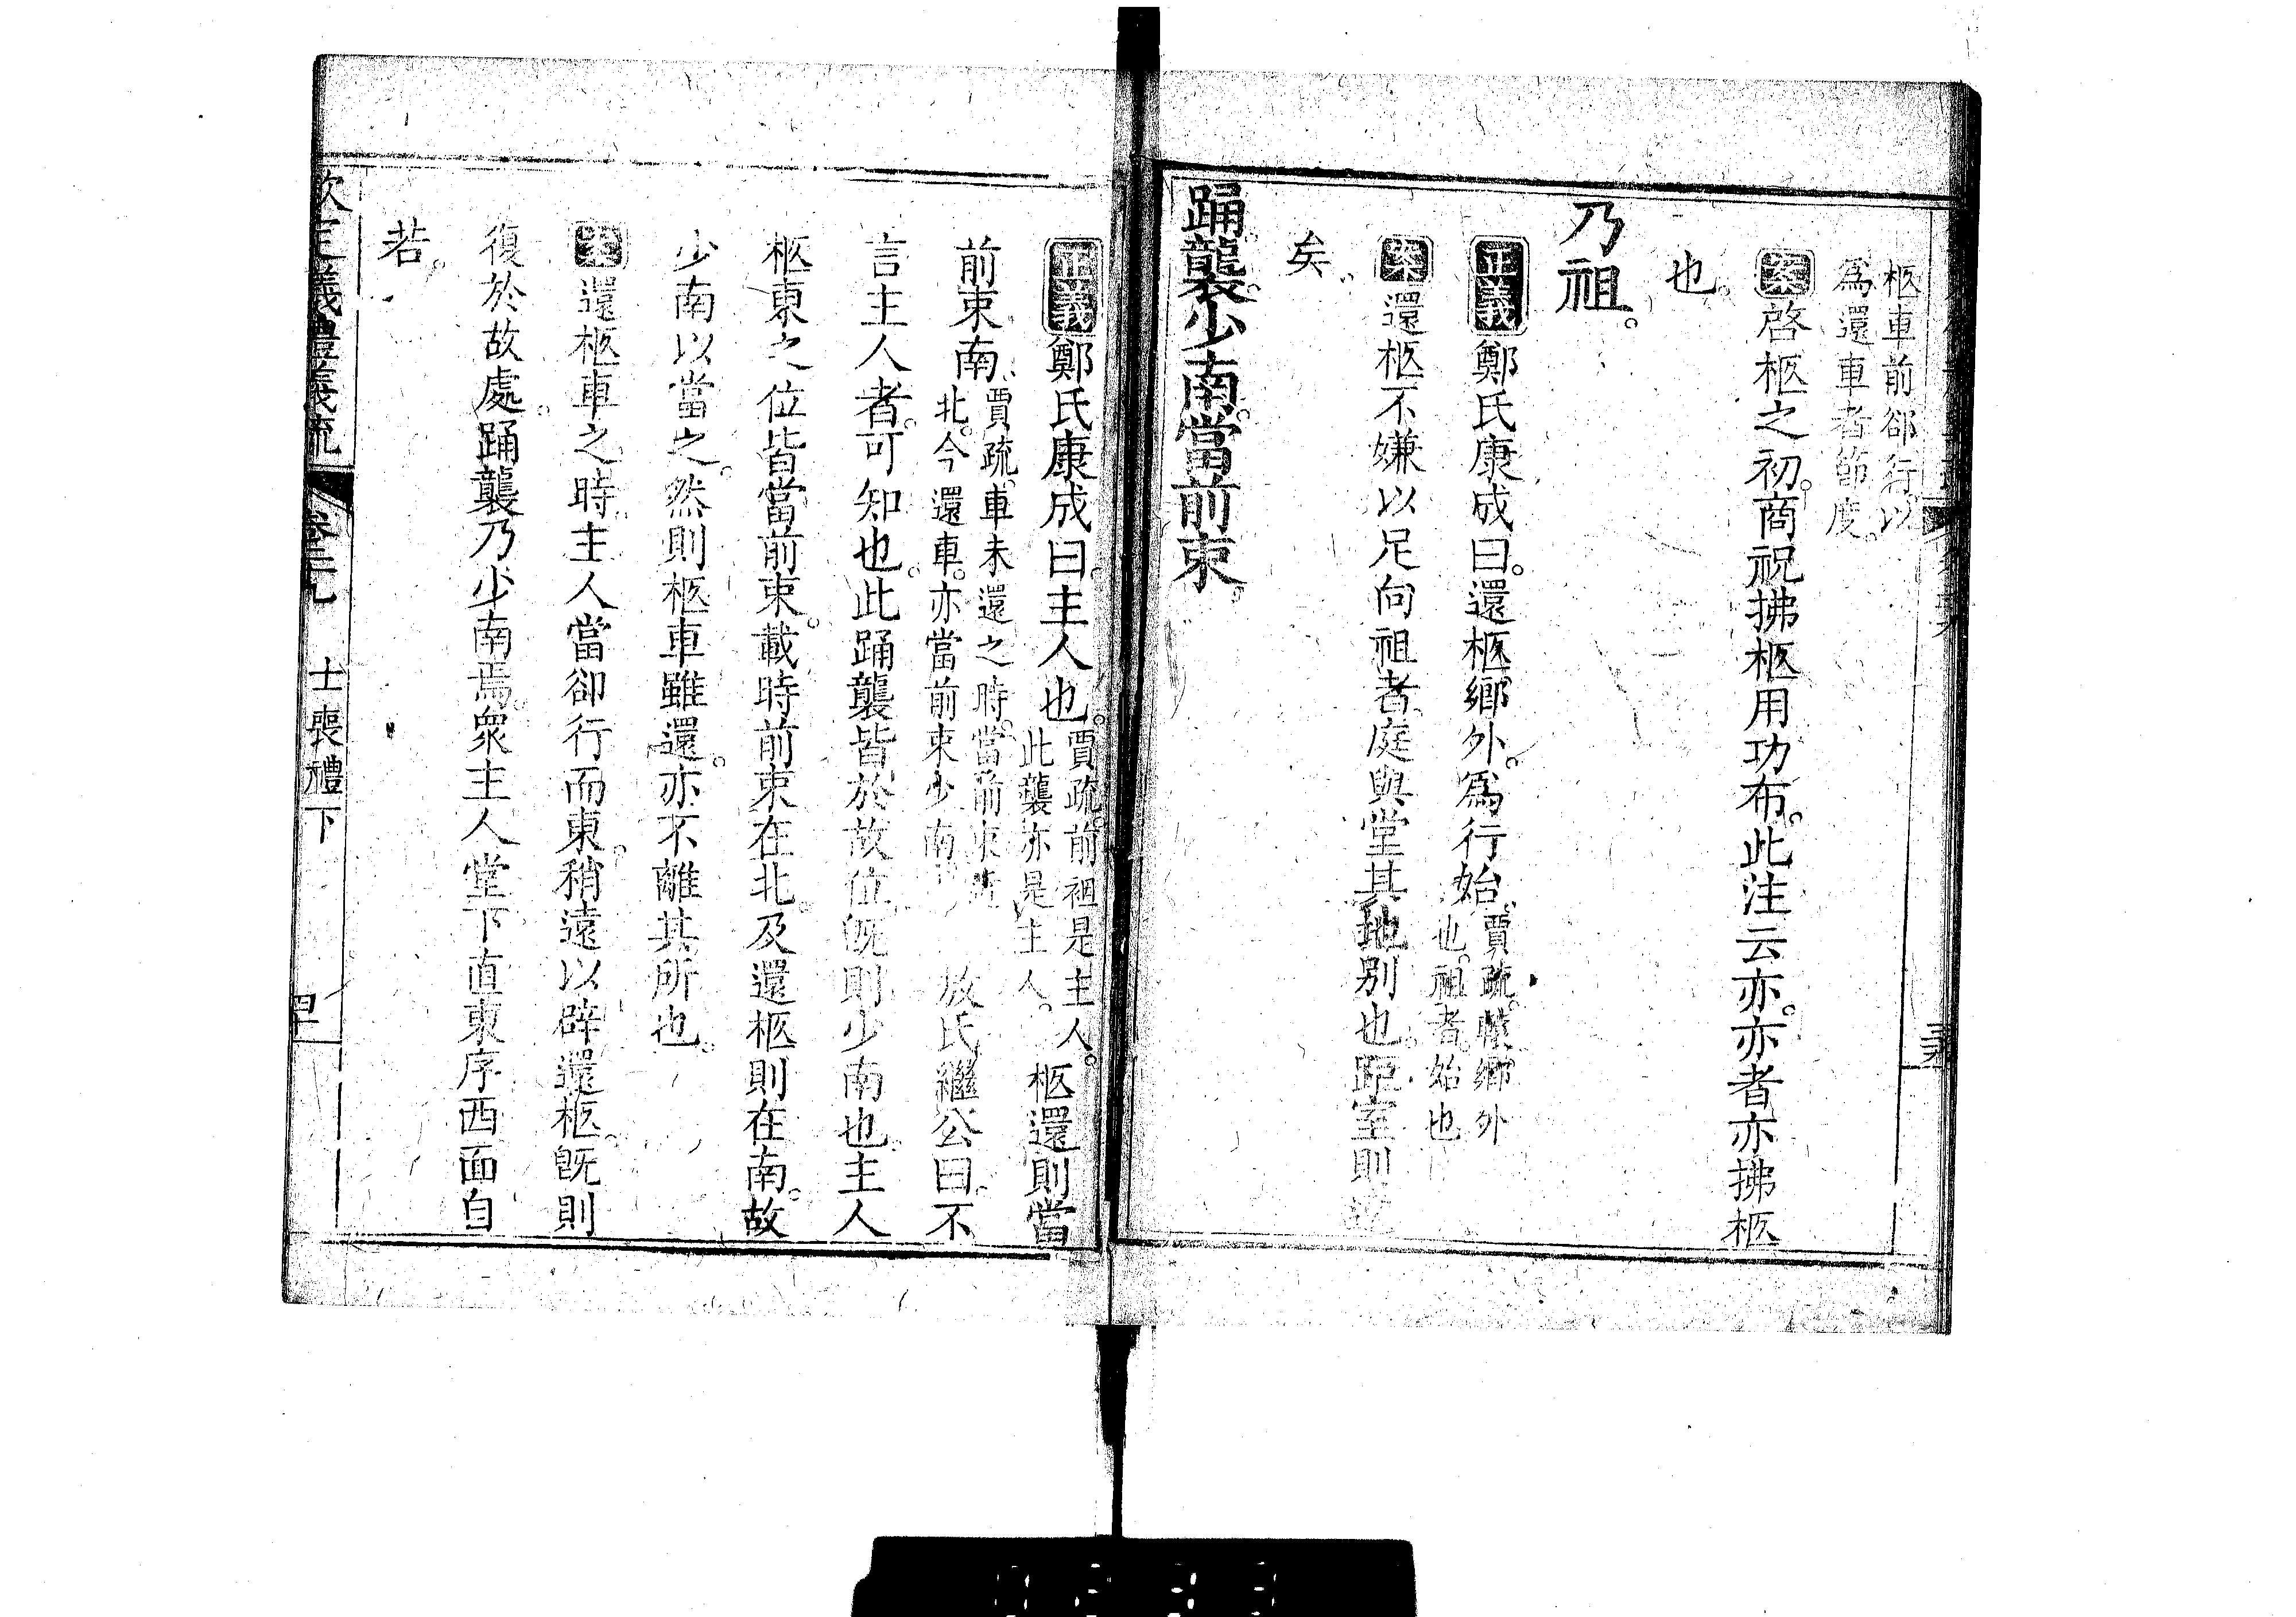 柩車前卻行以
爲還車者節度。
案啓柩之初。商祝拂柩用功布。此注云亦。亦者亦拂柩
也。
乃祖。
正義鄭氏康成曰。還柩鄉外。爲行始。賈疏。鄉外
也。祖者。始也
案還柩不嫌以足向祖者。庭與堂其地別也。距室則
矣。
踊。襲。少南。當前束。
正義鄭氏康成曰。主人也。賈疏。前袒是主人。
此襲亦是主人。柩還則當
前束南。賈疏。車未還之時。當前束
北。今還車。亦當前束少南
氏繼公曰。不
言主人者。可知也。此踊襲皆於故位。旣則少南也。主人
柩東之位。皆當前束。載時前束在北。及還柩則在南。故
少南以當之。然則柩車雖還。亦不離其所也。
案還柩車之時。主人當卻行而東。稍遠以辟還柩。旣則
復於故處。踊襲乃少南焉。衆主人堂下直東序西面自
若。
欽定義禮義疏
卷三九
士喪禮下